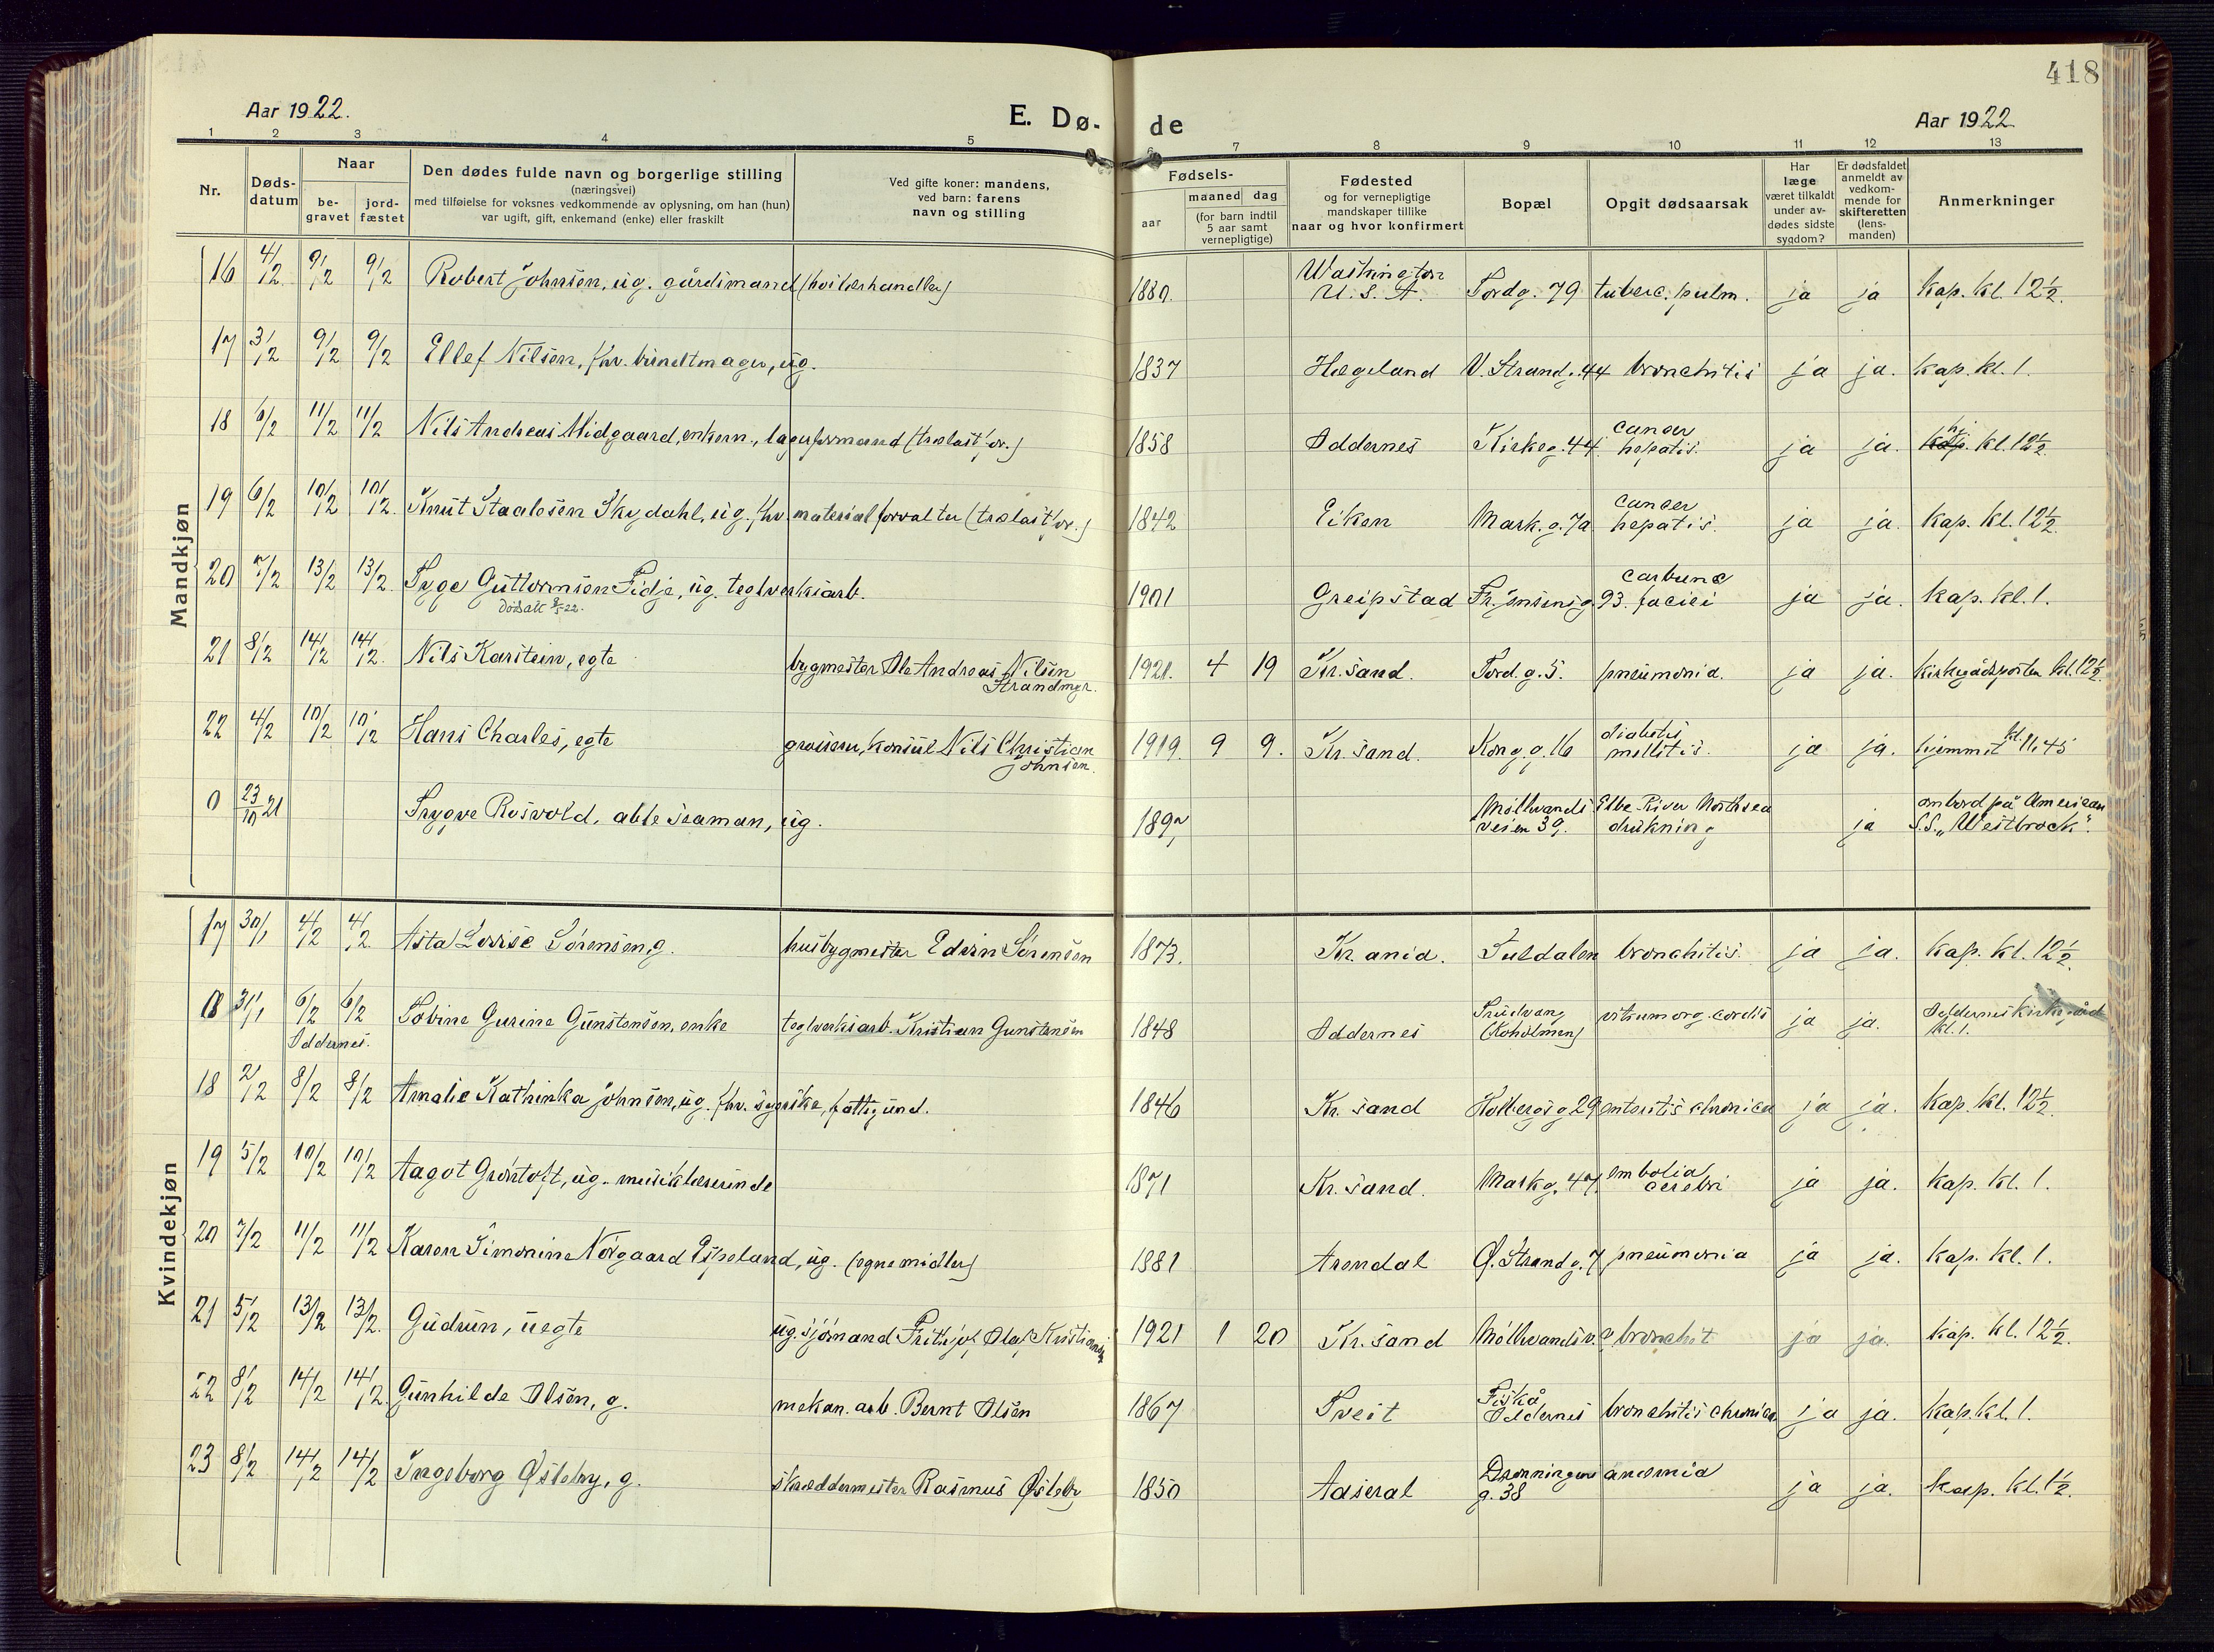 418
Aar 1922.
E. Dø-
de
Aar 1922
1 2 3 4 5 6 7 8 9 10 11 12 13
Nr.
Døds-
datum
Naar
be-
gravet
jord-
fæstet
Den dødes fulde navn og borgerlige stilling
(næringsvei)
med tilføielse for voksnes vedkommende av oplysning, om han (hun)
var ugift, gift, enkemand (enke) eller fraskilt
Ved gifte koner: mandens,
ved barn: farens
navn og stilling
Fødsels-
aar
maaned dag
(for barn indtil
5 aar samt
vernepligtige)
Fødested
og for vernepligtige
mandskaper tillike
naar og hvor konfirmert
Bopæl
Opgit dødsaarsak
Har
læge
været tilkaldt
under av-
dødes sidste
sygdom?
Er dødsfaldet
anmeldt av
vedkom-
mende for
skifteretten
(lens-
manden)
Anmerkninger
Mandkjøn
16 4/2 9/2 9/2 Robert Johnsen, ug. gårdsmand 1880. Washington U. S. A. Tordg. 79 tuberc. pulm. ja ja Kap. kl. 12½.
17 3/2 9/2 9/2 Ellef Nilsen, fhv. bundtmager, ug. 1837 Hægeland V. Strandg. 44 bronchitis ja ja. Kap. kl. 1.
18 6/2 11/2 11/2 Nils Andreas Midgaard, enkem., lagerformand (trælastforr.) 1858 Oddernes Kirkeg. 44. cancer hepatis. ja ja. hj. kl. 12½.
19 6/2 10/2 10/2 Knut Staalesen Skydahl, ug. fhv. materialforvalter (trælastforr.) 1842 Eiken Mark. g. 7a cancer hepatis. ja ja. Kap. kl. 12½
20 7/2 13/2 13/2. Tyge Guttormsen Fidje, ug. teglverksarb. 1901 Greipstad Fr. Jensensg. 93. carbunc faciei ja ja. Kap. kl. 1.
Dødsatt 9/5-22.
21 8/2 14/2 14/2. Nils Karstein, egte bygmester Ole Andreas Nilsen Strandmyr. 1921. 4 19 Kr.sand. Tord. g. 5. pneumonia. ja ja. Kirkegårdsporten kl. 12½.
22 4/2 10/2 10/2 Hans Charles, egte grosserer, konsul Nils Christian Johnsen. 1919. 9 9. Kr.sand. Kong. g. 16 diabetis mellitis. ja ja. hjemmet kl. 11.45
0 23/10 21 Trygve Rosvold, able seaman, ug. 1897 Møllevandsveien 39. Elbe River Northsea drukning ja ombord på American S.S. „Westbrook".
Kvindekjøn
17 30/1 4/2 4/2. Asta Lovise Sørensen, g. husbygmester Edvin Sørensen 1873. Kr.ania. Suldalen bronchitis. ja ja. Kap. kl. 12½.
0 31/1 6/2 6/2 Tobine Gurine Gunstensen, enke teglverksarb. Kristian Gunstensen 1848 Oddernes Trudvang (Koholmen) vitium org. cordis ja ja. Oddernes kirkegård kl. 1.
Oddernes.
18 2/2 8/2 8/2 Amalie Kathinka Johnsen, ug. fhv. syerske, fattigund. 1846 Kr.sand Holbergsg 29 enteritis chronica ja ja. Kap. kl. 12½.
19 5/2 10/2 10/2 Aagot Grøntoft, ug. musiklærerinde 1871 Kr.sand. Markg. 47. embolia cerebri ja ja. Kap. kl. 1.
20 7/2 11/2 11/2 Karen Simonine Nørgaard Espeland, ug. (egne midler) 1881 Arendal Ø. Strandg. 7 pneumonia ja ja. Kap. kl. 1.
21 5/2 13/2 13/2. Gudrun, uegte ug. sjømand Frithjof Olaf Kristiansen 1921 1 20 Kr.sand Møllevandsv. bronchit ja ja. Kap. kl. 12½.
22 8/2 14/2 14/2. Gunhilde Olsen, g. mekan. arb. Bernt Olsen 1867 Tveit Fiskå Oddernes bronchitis chronica ja ja. Kap. kl. 1.
23 8/2 14/2 14/2 Ingeborg Østeby, g. skræddermester Rasmus Østeby 1850 Aaseral Dronningens g. 38 anemia ja ja. Kap. kl. 1½.